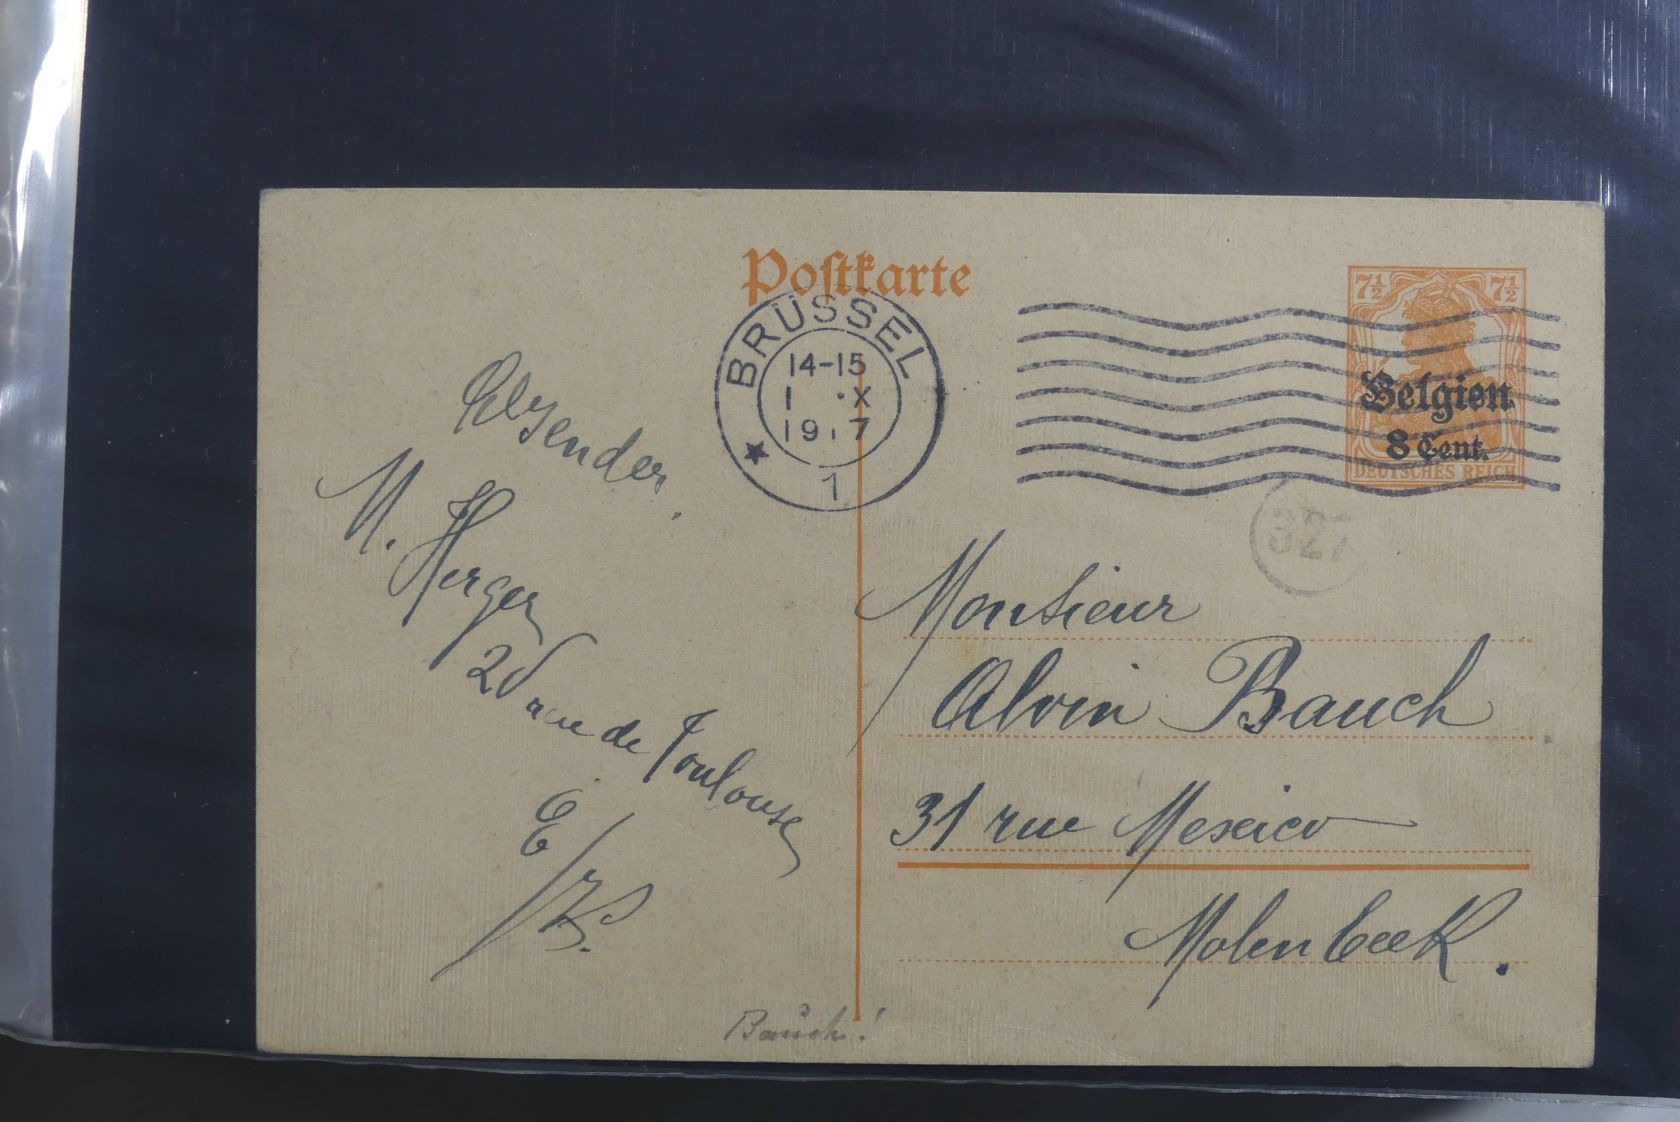 Postkarte
7½ 7½
Belgien
8 Cent.
DEUTSCHES REICH
BRÜSSEL
14-15
1 ·X
1917
1
327
Monsieur
Alvin Bauch
31 rue Mexico
Molenbeek.
Absender
M. Herger
rue de Toulouse
E/
Bauch!